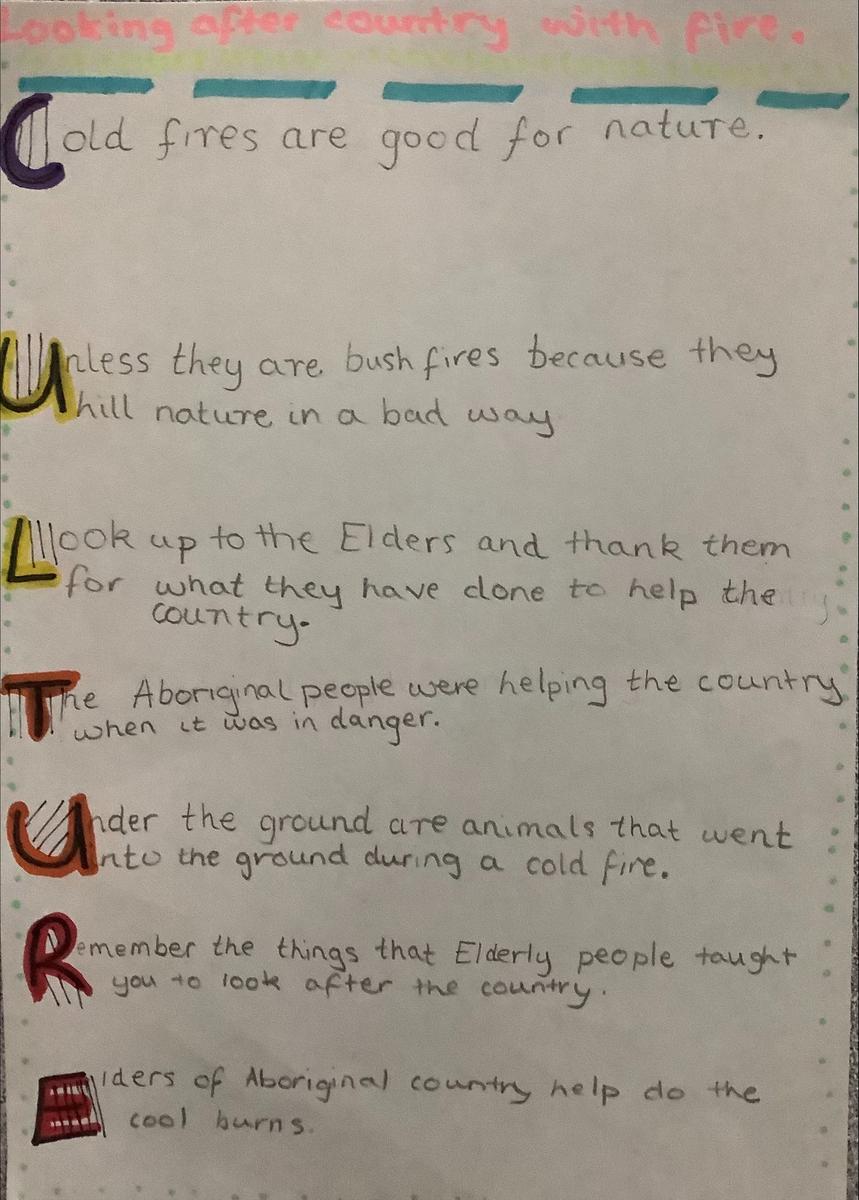 Looking after country with fire.
Cold fires are good for nature.
Unless they are bush fires because they
hill nature in a bad way
Llook up to the Elders and thank them
for what they have done to help the
country.
The Aboriginal people were helping the country
when it was in danger.
Under the ground are animals that went
into the ground during a cold fire.
Remember the things that Elderly people taught
you to look after the country.
Elders of Aboriginal country help do the
cool burns.